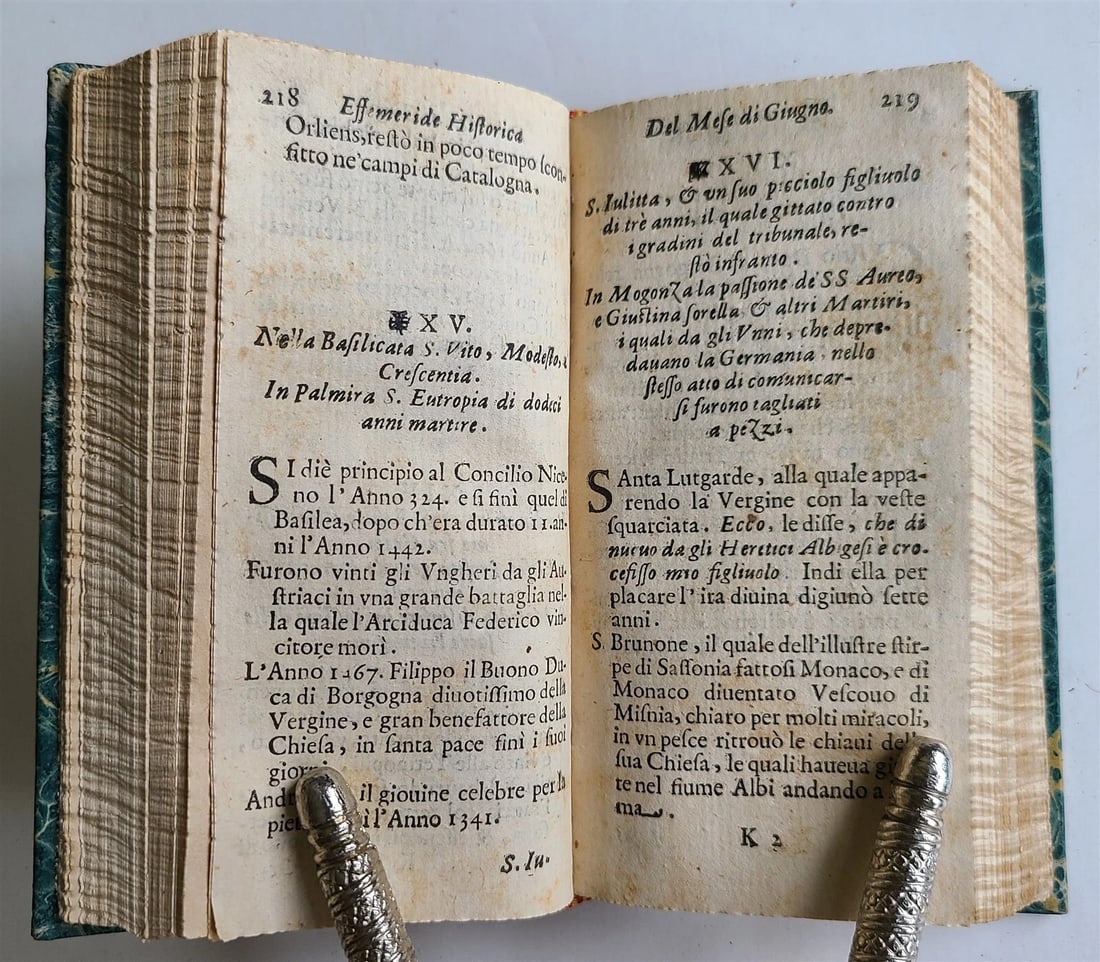 218 Effemeride Hiſtorica
Orliens, reſtò in poco tempo ſcon-
fitto ne'campi di Catalogna.
XV.
Nella Baſilicata S. Vito, Modeſto,
Creſcentia.
In Palmira S. Eutropia di dodici
anni martire.
SI diè principio al Concilio Nice-
no l'Anno 324. e ſi finì quel di
Baſilea, dopo ch'era durato 11.an-
ni l'Anno 1442.
Furono vinti gli Vngheri da gli Au-
ſtriaci in vna grande battaglia nel-
la quale l'Arciduca Federico vin-
citore morì.
L'Anno 1467. Filippo il Buono Du-
ca di Borgogna diuotiſſimo della
Vergine, e gran benefattore della
Chieſa, in ſanta pace finì i ſuoi
giorni
il giouine celebre per la
l'Anno 1341.
S. Iu-
Del Meſe di Giugno. 219
XVI.
S. Iulitta, & vn ſuo picciolo figliuolo
di trè anni, il quale gittato contro
i gradini del tribunale, re-
ſtò infranto.
In Mogonza la paſſione de' SS Aureo,
e Giuſtina ſorella, & altri Martiri,
i quali da gli Vnni, che depre-
dauano la Germania, nello
ſteſſo atto di comunicar-
ſi furono tagliati
a pezzi.
SAnta Lutgarde, alla quale appa-
rendo la Vergine con la veſte
ſquarciata. Ecco, le diſſe, che di
nuouo da gli Heretici Albigeſi è cro-
cefiſſo mio figliuolo. Indi ella per
placare l'ira diuina digiunò ſette
anni.
S. Brunone, il quale dell'illuſtre ſtir-
pe di Saſſonia fattoſi Monaco, e di
Monaco diuentato Veſcouo di
Miſnia, chiaro per molti miracoli,
in vn peſce ritrouò le chiaui della
ſua Chieſa, le quali haueua
te nel fiume Albi andando a
ma.
K 2